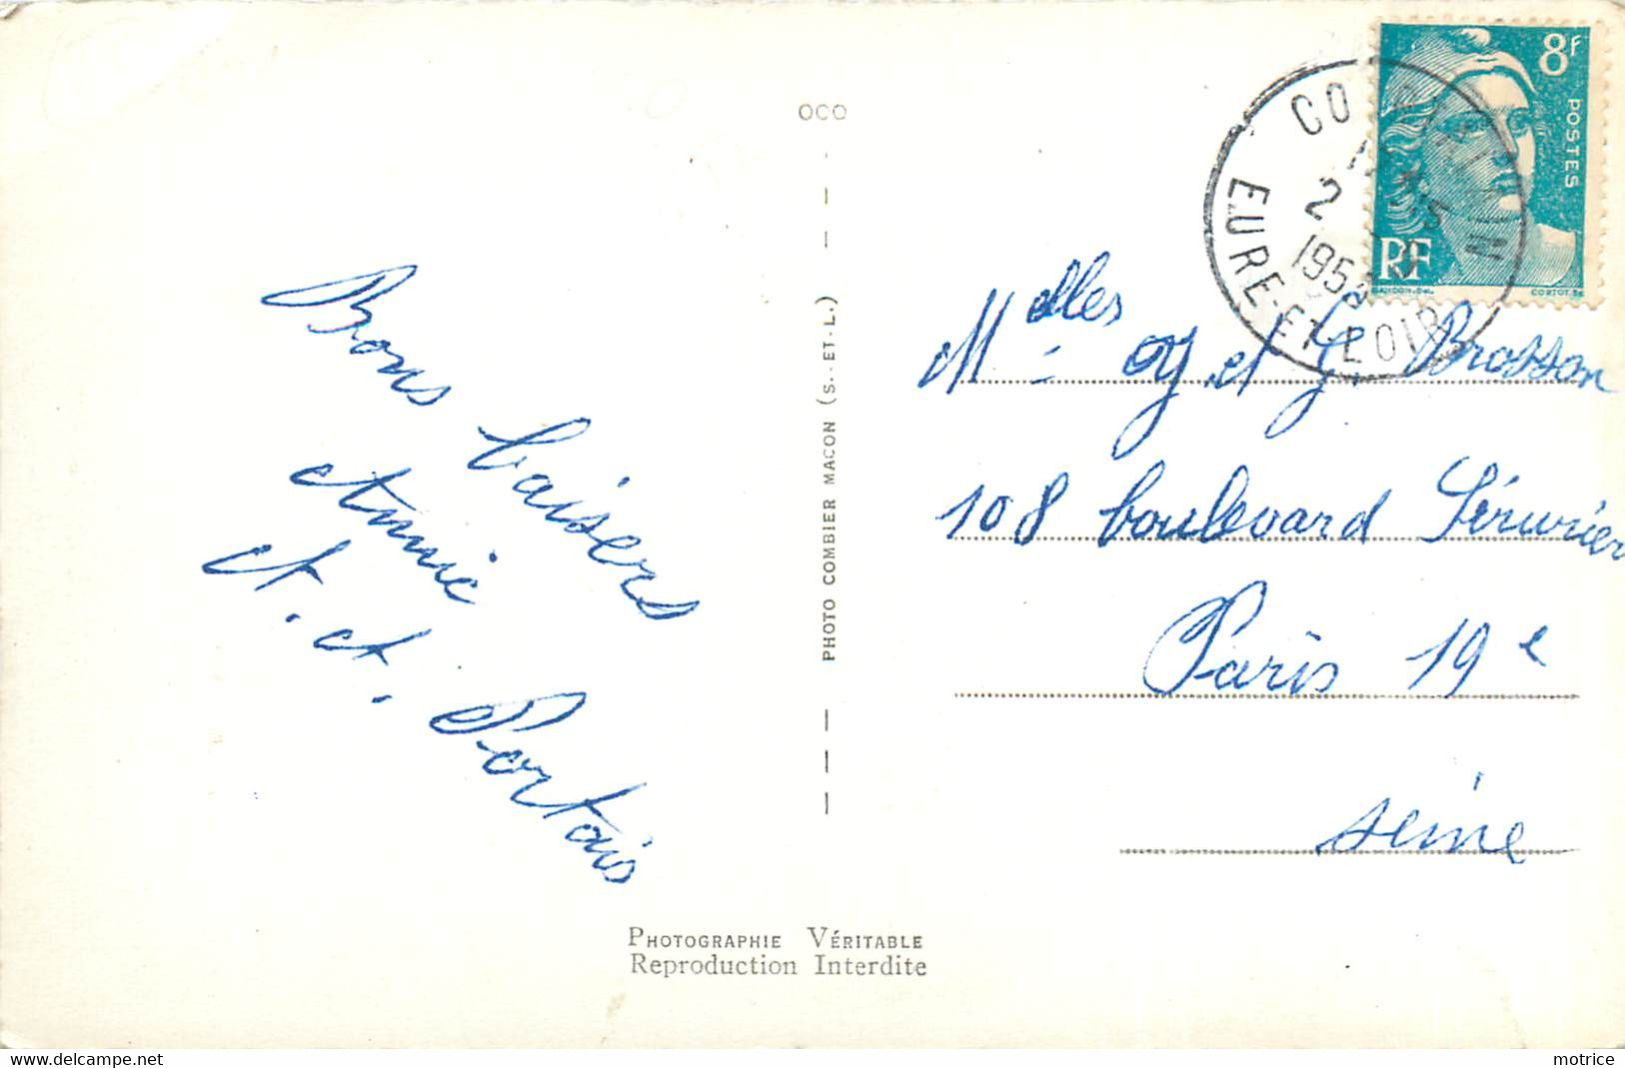 OCO
Bons baisers
Annie
A. et A. Portais
PHOTO COMBIER MACON (S.-ET-L.)
PHOTOGRAPHIE VÉRITABLE
Reproduction Interdite
8F
POSTES
RF
CORTOT.SC
2
EURE-ET-LOIR
Melles et J. Brosson
108 boulevard Sérurier
Paris 19e
Seine
www.delcampe.net
motrice